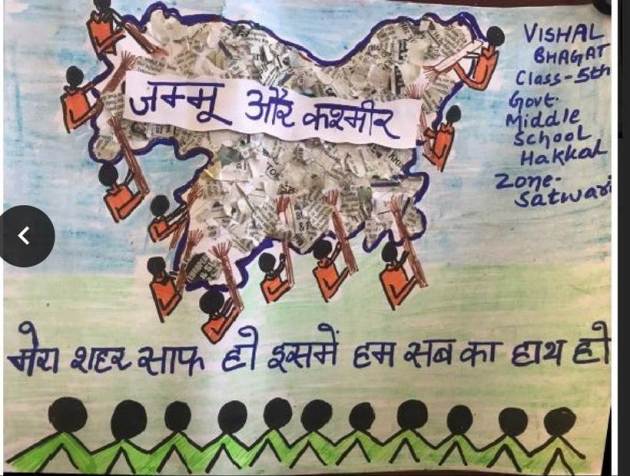 जम्मू और कश्मीर
VISHAL
BHAGAT
Class-5th
Govt.
Middle
School
Hakkal
Zone-
Satwari
मेरा शहर साफ हो इसमें हम सब का हाथ हो